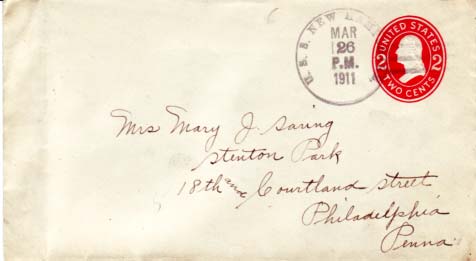 U. S. S. NEW HAM
MAR
26
P.M.
1911
UNITED STATES
2 2
TWO CENTS
Mrs Mary J. Saring
Stenton Park
18th and Courtland street
Philadelphia
Penna